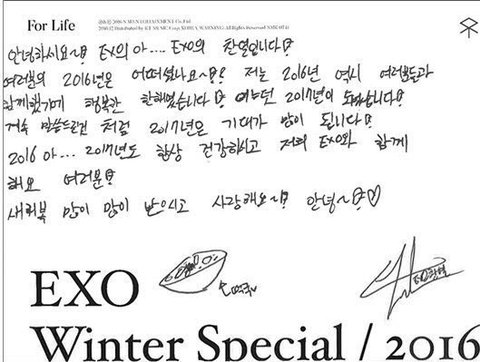 For Life
안녕하시요~? EXO의 아... EXO의 찬열입니다?
여러분의 2016년은 어떠셨나요~? 저는 2016년 역시 여러분들과
함께했기에 행복한 한해였습니다? 어느덧 2017년이 되었습니다?
계속 말씀드리던 것처럼 2017년은 기대가 많이 됩니다?
2016 아... 2017년도 항상 건강하시고 저희 EXO와 함께
해요 여러분?
새해복 많이 많이 받으시고 사랑해요~? 안녕~?♡
EXO
Winter Special / 2016